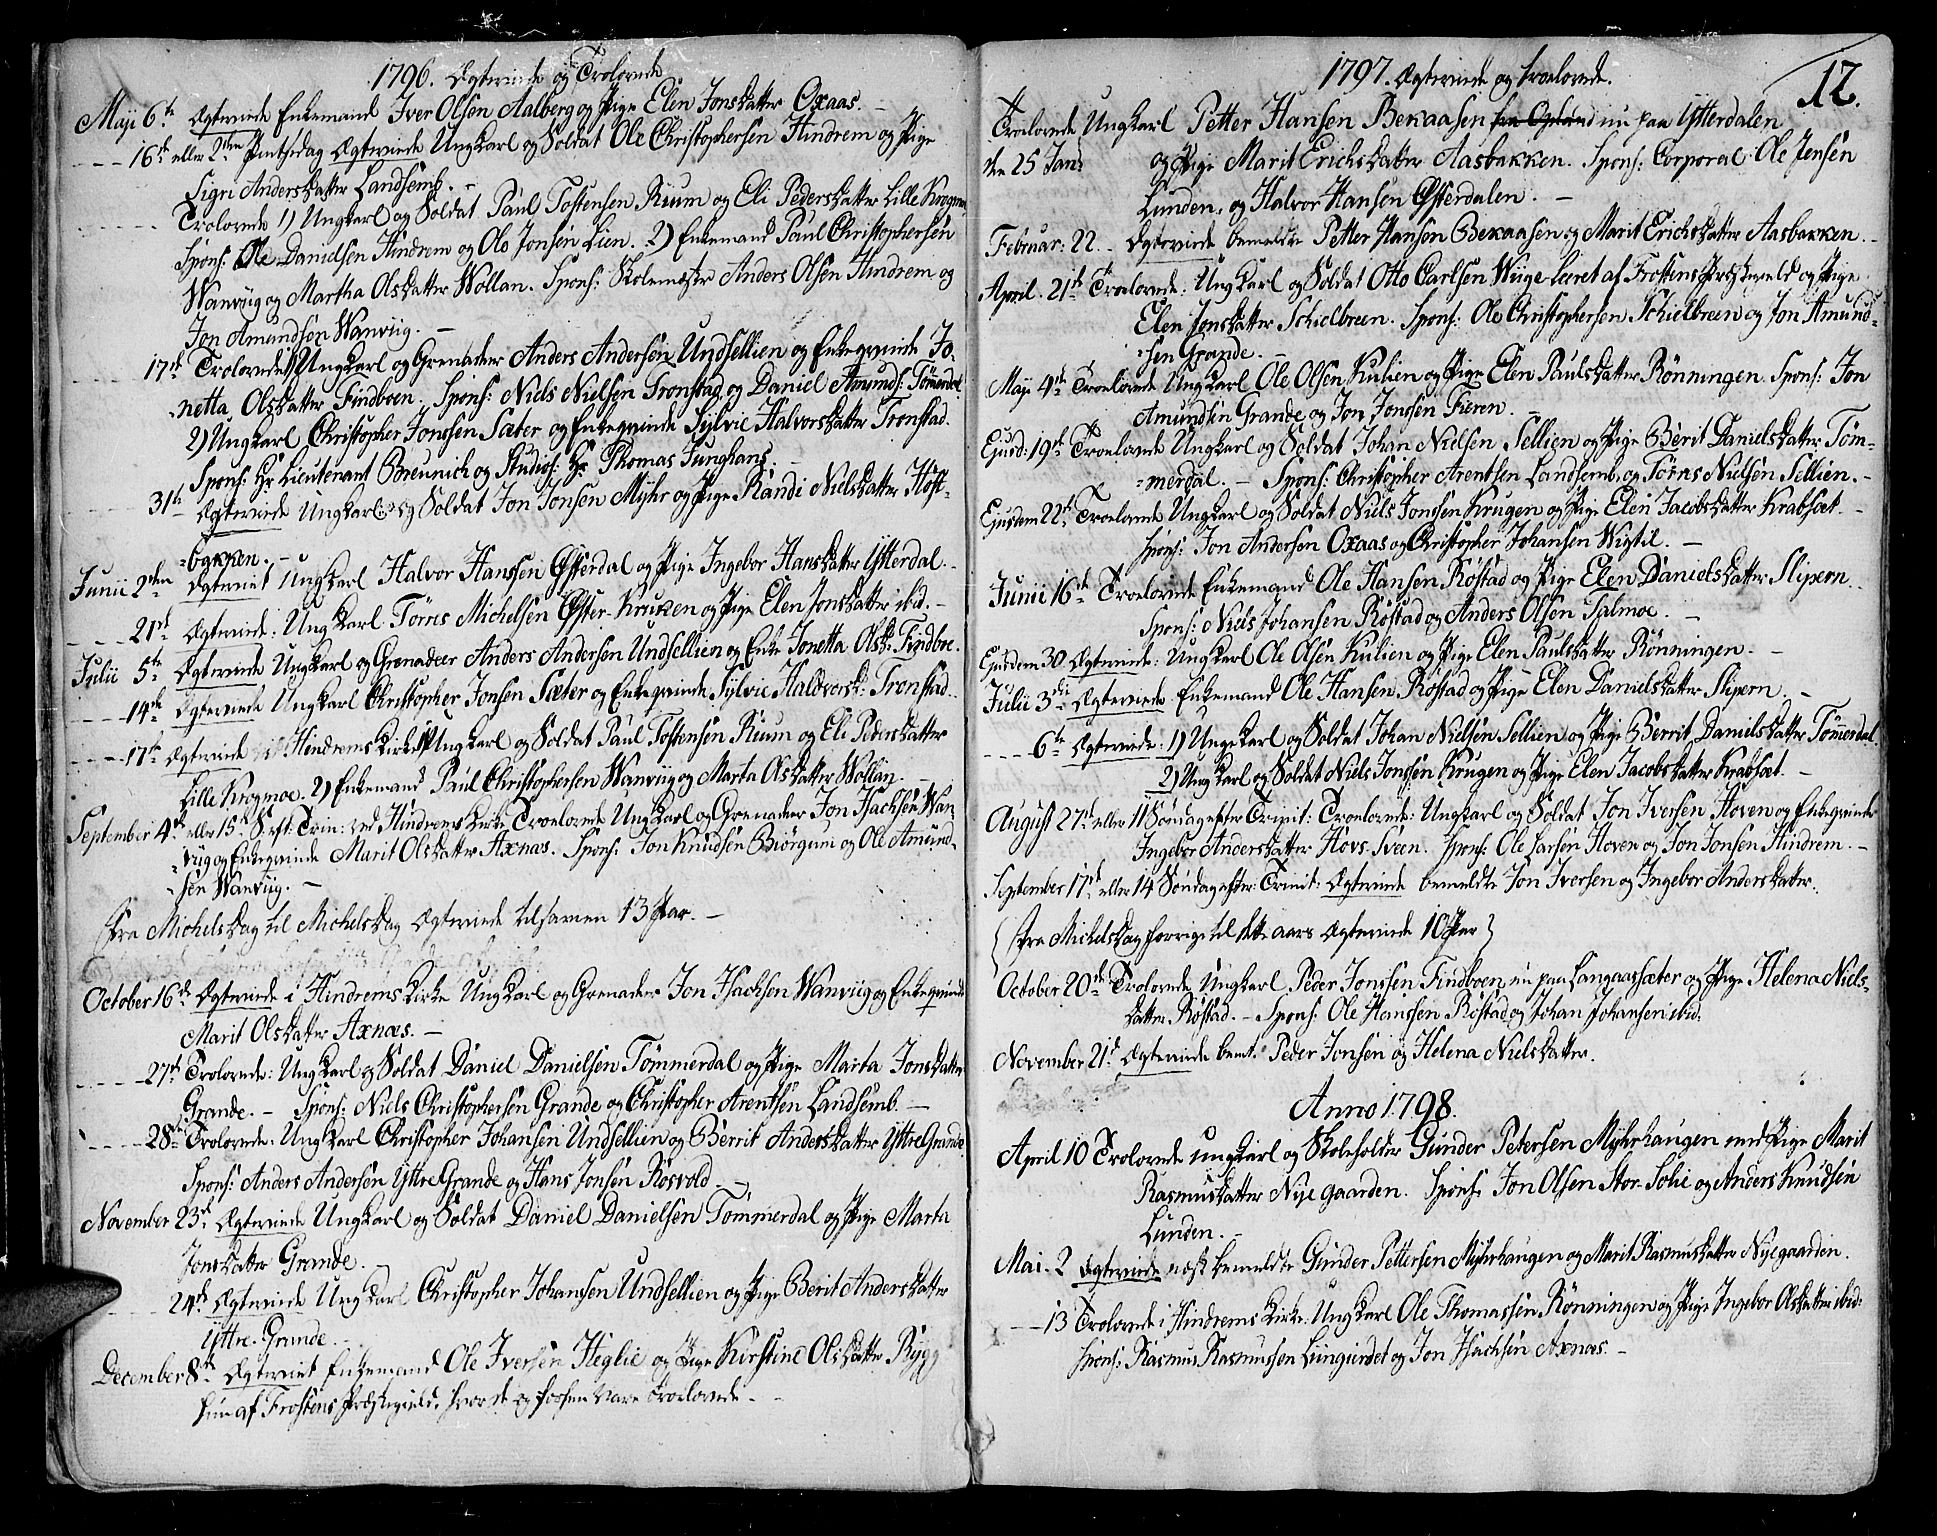 1796. Ægteviede og Trolovede
Maji 6te Ægteviede Enkemand Iver Olsen Aalberg og Pige Elen Jonsdatter Oxaas. -
16de eller 2den Pintsedag Ægteviede Ungkarl og Soldat Ole Christophersen Hindrem og Pige
Sigri Andersdatter Landsemb. -
Trolovede 1) Ungkarl og Soldat Paul Tostensen Rium og Eli Pedersdatter Lille Krogmoe
Spons: Ole Danielsen Hindrem og Ole Jonsen Lien. 2) Enkemand Paul Christophersen
Wanviig og Martha Olsdatter Wollan. Spons: Skolemester Anders Olsen Hindrem og
Jon Amundsen Wanviig. -
17de Trolovede 1) Ungkarl og Grenadeer Anders Andersen Undsellien og Enkeqvinde Jo-
netta Olsdatter Findboen. Spons: Niels Nielsen Tronstad og Daniel Amunds: Tømerdal.
2) Ungkarl Christopher Jonssen Sæter og Enkeqvinde Sylvie Halvorsdatter Tronstad.
Spons: Hr Lieutenant Breunich og Studios: Hr Thomas Junghans. -
31te Ægteviede Ungkarl og Soldat Jon Jonsen Myhr og Pige Randi Nielsdatter Høst-
=bakken. -
Junii 2den Ægteviet Ungkarl Halvor Hanssen Østerdal og Pige Ingebor Hansdatter Ytterdal. -
21de Ægteviede: Ungkarl Tørris Michelsen Øster-Kruken og Pige Elen Jonsdatter ibid. -
Julii 5te Ægteviede Ungkarl og Grenadeer Anders Andersen Undsellien og Enke Jonetta Olsd: Findboe.
14de Ægteviede Ungkarl Christopher Jonsen Sæter og Enkeqvinde Sylvie Haldvorsd: Tronstad.
17de Ægteviede i Hindrems Kirke 1) Ungkarl og Soldat Paul Tostensen Rium og Eli Pedersdatter
Lille Krogmoe. 2) Enkemand Paul Christophersen Wanviig og Marta Olsdatter Wollan. -
September 4de eller 15de S: eft: Trin: ved Hindrems Kirke Troelovede Ungkarl og Grenadeer Jon Isachsen Wan-
viig og Enkeqvinde Marit Olsdatter Axnæs. Spons: Jon Knudsen Biörgum og Ole Amund-
sen Wanviig. -
Fra Michelsdag til Michelsdag Ægteviede tilsamen 13 Par. -
October 16de Ægteviede i Hindrems Kirke Ungkarl og Grenadeer Jon Isachsen Wanviig og Enkeqvinde
Marit Olsdatter Axnæs. -
27de Trolovede: Ungkarl og Soldat Daniel Danielsen Tømmerdal og Pige Marta Jonsdatter
Grande. - Spons: Niels Christophersen Grande og Christopher Arentsen Landsemb. -
28de Trolovede: Ungkarl Christopher Johansen Undsellien og Berrit Andersdatter Yttre Grande
Spons: Anders Andersen Yttre Grande og Hans Jonsen Rosvold. -
November 23de Ægteviede Ungkarl og Soldat Daniel Danielsen Tømmerdal og Pige Marta
Jonsdatter Grande.
24de Ægteviede Ungkarl Christopher Johanssen Undsellien og Pige Berit Andersdatter
Yttre-Grande. -
December 8de Ægteviet Enkemand Ole Iversen Heglie og Pige Kirstine Olsdatter Rygg
hun af Frostens Præstegield. hvor de og forhen vare Troelovede. -
1797. Ægteviede og Troelovede.
12.
Troelovede Ungkarl Petter Hansen Bekaasen fra Opland nu paa Ytterdalen
den 25 Jan: og Pige Marit Erichsdatter Aasbakken. Spons: Corporal Ole Jensen
Lunden, og Halvor Hansen Østerdalen. -
Februar: 22. Ægteviede bemeldte Petter Hanson Bekaasen og Marit Erichsdatter Aasbakken. -
April. 21de Troelovede: Ungkarl og Soldat Otto Carlsen Wiige-leeret af Frostens Præstegield og Pige
Elen Jonsdatter Schielbreen. Spons: Ole Christophersen Schielbreen og Jon Amund-
=sen Grande. -
Maji 4de Troelovede Ungkarl Ole Olsen Kulien og Pige Elen Paulsdatter Rønningen. Spons: Jon
Amundsen Grande og Jon Jonssen Fieren. -
Ejusd: 19de Troelovede Ungkarl og Soldat Johan Nielsen Sellien og Pige Berit Danielsdatter Tøm-
=merdal. - Spons: Christopher Arentsen Landsemb, og Tørris Nielsen Sellien. -
Ejusdem 22de Troelovede Ungkarl og Soldat Niels Jonssen Krugen og Pige Elen Jacobsdatter Krabsæt. -
Spons: Jon Andersen Oxaas og Christopher Johansen Wigtil. -
Junii 16de Troelovede Enkemand Ole Hansen Røstad og Pige Elen Danielsdatter Slipern.
Spons: Niels Johansen Røstad og Anders Olsen Salmoe. -
Ejusdem 30 Ægteviede: Ungkarl Ole Olsen Kulien og Pige Elen Paulsdatter Rønningen. -
Julii 3die Ægteviede Enkemand Ole Hansen Røstad og Pige Elen Danielsdatter Slipern. -
6te Ægteviede: 1) Ungekarl og Soldat Johan Nielsen Sellien og Pige Berrit Danielsdatter Tømerdal.
2) Ungkarl og Soldat Niels Jonssen Krugen og Pige Elen Jacobsdatter Krabsæt. -
August 27de eller 11 Søndag efter Trinit: Troelovede: Ungkarl og Soldat Jon Iversen Hoven og Enkeqvinde
Ingebor Andersdatter Hovs-Sveen. Spons: Ole Larsen Hoven og Jon Jonsen Hindrem. -
September 17de eller 14 Søndag efter: Trinit: Ægteviede bemeldte Jon Iversen og Ingebor Andersdatter.
{ Fra Michelsdag forrige til dette aars Ægteviede 10 Par }
October 20de Trolovede Ungkarl Peder Jonssen Findboen nu paa Langaassæter og Pige Helena Niels-
datter Røstad. - Spons: Ole Hanssen Røstad og Johan Johansen ibid:
November 21de Ægteviede bemt. Peder Jonsen og Helena Nielsdatter.
Anno 1798.
April 10 Trolovede Ungkarl og Skoleholder Gunder Petersen Myhrhaugen med Pige Marit
Rasmusdatter Nyegaarden. Spons: Jon Olsen Stor-Solie og Anders Knudsen
Lunden. -
Mai- 2 Ægteviede næst bemeldte Gunder Pettersen Myhrhaugen og Marit Rasmusdatter Nyegaarden.
13 Trolovede i Hindrems Kirke: Ungkarl Ole Thomassen Rønningen og Pige Ingebor Olsdatter ibid:
Spons: Rasmus Rasmussen Lungierdet og Jon Isachsen Axnæs. -